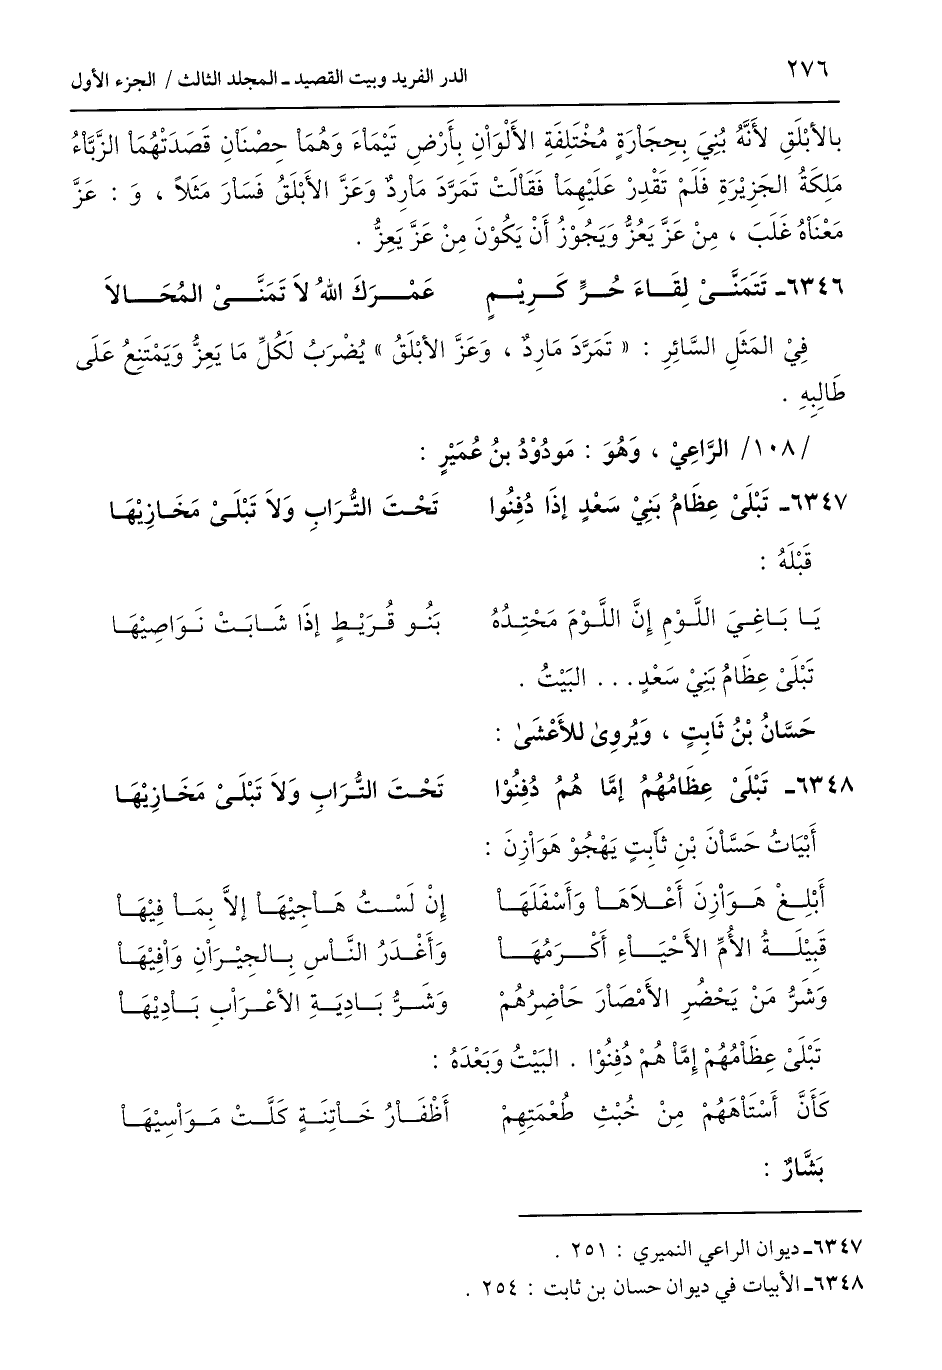 ٢٧٦ الدر الفريد وبيت القصيد ـ المجلد الثالث / الجزء الأول
بالأبْلَقِ لأَنَّهُ بُنِيَ بِحِجَاْرَةٍ مُخْتَلِفَةِ الأَلْوَاْنِ بِأَرْضِ تَيْمَاْءَ وَهُمَاْ حِصْنَاْنِ قَصَدَتْهُمَاْ الزَّبَّاْءُ
مَلِكَةُ الجَزِيْرَةِ فَلَمْ تَقْدِرْ عَلَيْهِمَاْ فَقَاْلَتْ تَمَرَّدَ مَاْرِدٌ وَعَزَّ الأَبْلَقُ فَسَاْرَ مَثَلاً ، وَ : عَزَّ
مَعْنَاْهُ غَلَبَ ، مِنْ عَزَّ يَعُزُّ وَيَجُوْزُ أَنْ يَكُوْنَ مِنْ عَزَّ يَعِزُّ .
٦٣٤٦ـ تَتَمَنَّىْ لِقَاءَ حُرٍّ كَرِيْمٍ عَمْرَكَ اللهُ لاَ تَمَنَّىْ المُحَالاَ
فِيْ المَثَلِ السَّائِرِ : « تَمَرَّدَ مَارِدٌ ، وَعَزَّ الأَبْلَقُ » يُضْرَبُ لَكُلِّ مَا يَعِزُّ وَيَمْتَنِعُ عَلَى
طَالِبِهِ .
/١٠٨/ الرَّاعِيْ ، وَهُوَ : مَودُوْدُ بنُ عُمَيْرٍ :
٦٣٤٧ـ تَبْلَىْ عِظَامُ بَنِيْ سَعْدٍ إذَا دُفِنُوا تَحْتَ التُّرَابِ وَلاَ تَبْلَىْ مَخَازِيْهَا
قَبْلَهُ :
يَا بَاغِيَ اللَّوْمِ إنَّ اللَّوْمَ مَحْتِدُهُ بَنُو قُرَيْطٍ إذَا شَابَتْ نَوَاصِيْهَا
تَبْلَىْ عِظَامُ بَنِيْ سَعْدٍ . . . البَيْتُ .
حَسَّانُ بْنُ ثَابِتٍ ، وَيُروىٰ للأَعْشَىٰ :
٦٣٤٨ـ تَبْلَىْ عِظَامُهُمُ إمَّا هُمُ دُفِنُوْا تَحْتَ التُّرَابِ وَلاَ تَبْلَىْ مَخَازِيْهَا
أَبْيَاتُ حَسَّانَ بْنِ ثاَبِتٍ يَهْجُوْ هَوَاْزِنَ :
أَبْلِغْ هَوَاْزِنَ أَعْلاَهَاْ وَأَسْفَلَهَاْ إنْ لَسْتُ هَاْجِيْهَاْ إلاَّ بِمَاْ فِيْهَاْ
قَبِيْلَةُ الأَمِّ الأَحْيَاْءِ أَكْرَمُهَاْ وَأَغْدَرُ النَّاْسِ بِالجِيْرَاْنِ وَاْفِيْهَاْ
وَشَرُّ مَنْ يَحْضُرِ الأَمْصَاْرَ حَاْضِرُهُمْ وَشَرُّ بَادِيَةِ الأَعْرَاْبِ بَاْدِيْهَاْ
تَبْلَىْ عِظَاْمُهُمْ إمَّاْ هُمْ دُفِنُوْا . البَيْتُ وَبَعْدَهُ :
كَأَنَّ أَسْتَاْهَهُمْ مِنْ خُبْثِ طُعْمَتِهِمْ أَظْفَاْرُ خَاْتِنَةٍ كَلَّتْ مَوَاْسِيْهَاْ
بَشَّارٌ :
٦٣٤٧ـ ديوان الراعي النميري : ٢٥١ .
٦٣٤٨ـ الأبيات في ديوان حسان بن ثابت : ٢٥٤ .